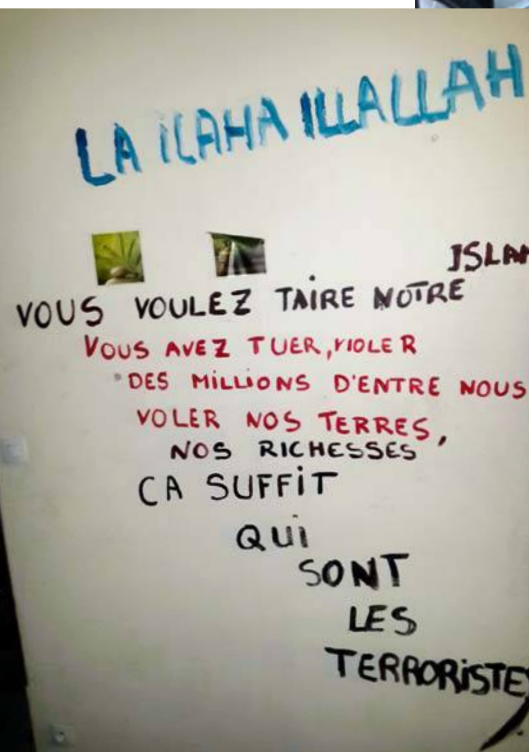 LA ILAHA ILLALLAH
ISLAM
VOUS VOULEZ TAIRE NOTRE
VOUS AVEZ TUER, VIOLER
DES MILLIONS D'ENTRE NOUS
VOLER NOS TERRES,
NOS RICHESSES,
CA SUFFIT
QUI
SONT
LES
TERRORISTES